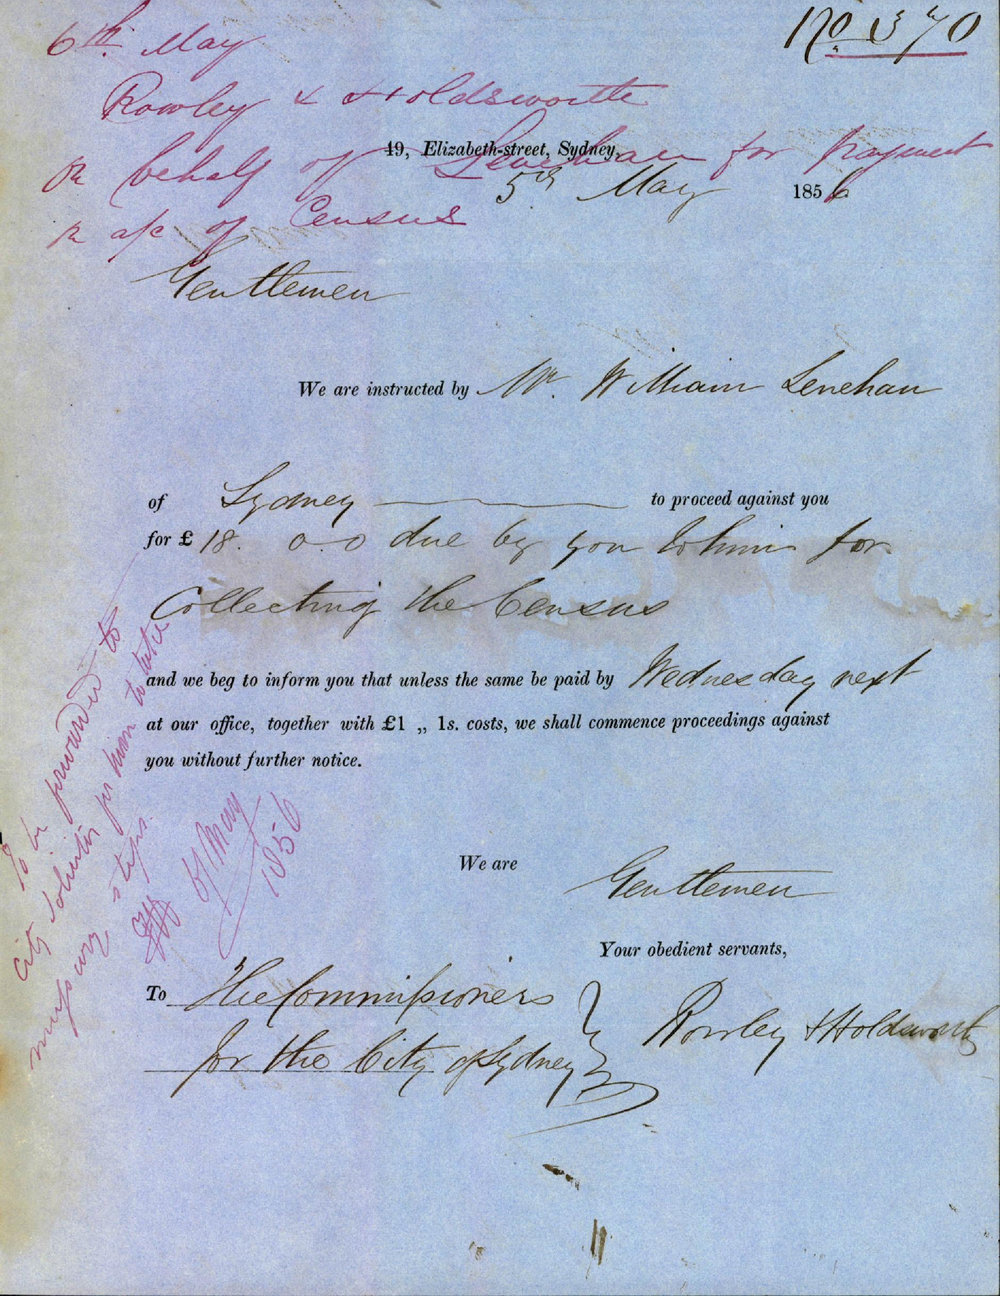 No 370
6th May
Rowley & Holdsworth
on behalf of Lenehan for payment
on a/c of Census
49, Elizabeth-street, Sydney,
5th May 1856
Gentlemen
We are instructed by Mr. William Lenehan
of Sydney to proceed against you
for £ 18. 0.0 due by you to him for
Collecting the Census
and we beg to inform you that unless the same be paid by Wednesday next
at our office, together with £1 „ 1s. costs, we shall commence proceedings against
you without further notice.
To be forwarded to
City Solicitor for him to take
necessary steps.
6/May
1856
We are
Gentlemen
Your obedient servants,
To The Commissioners
for the City of Sydney
Rowley & Holdsworth